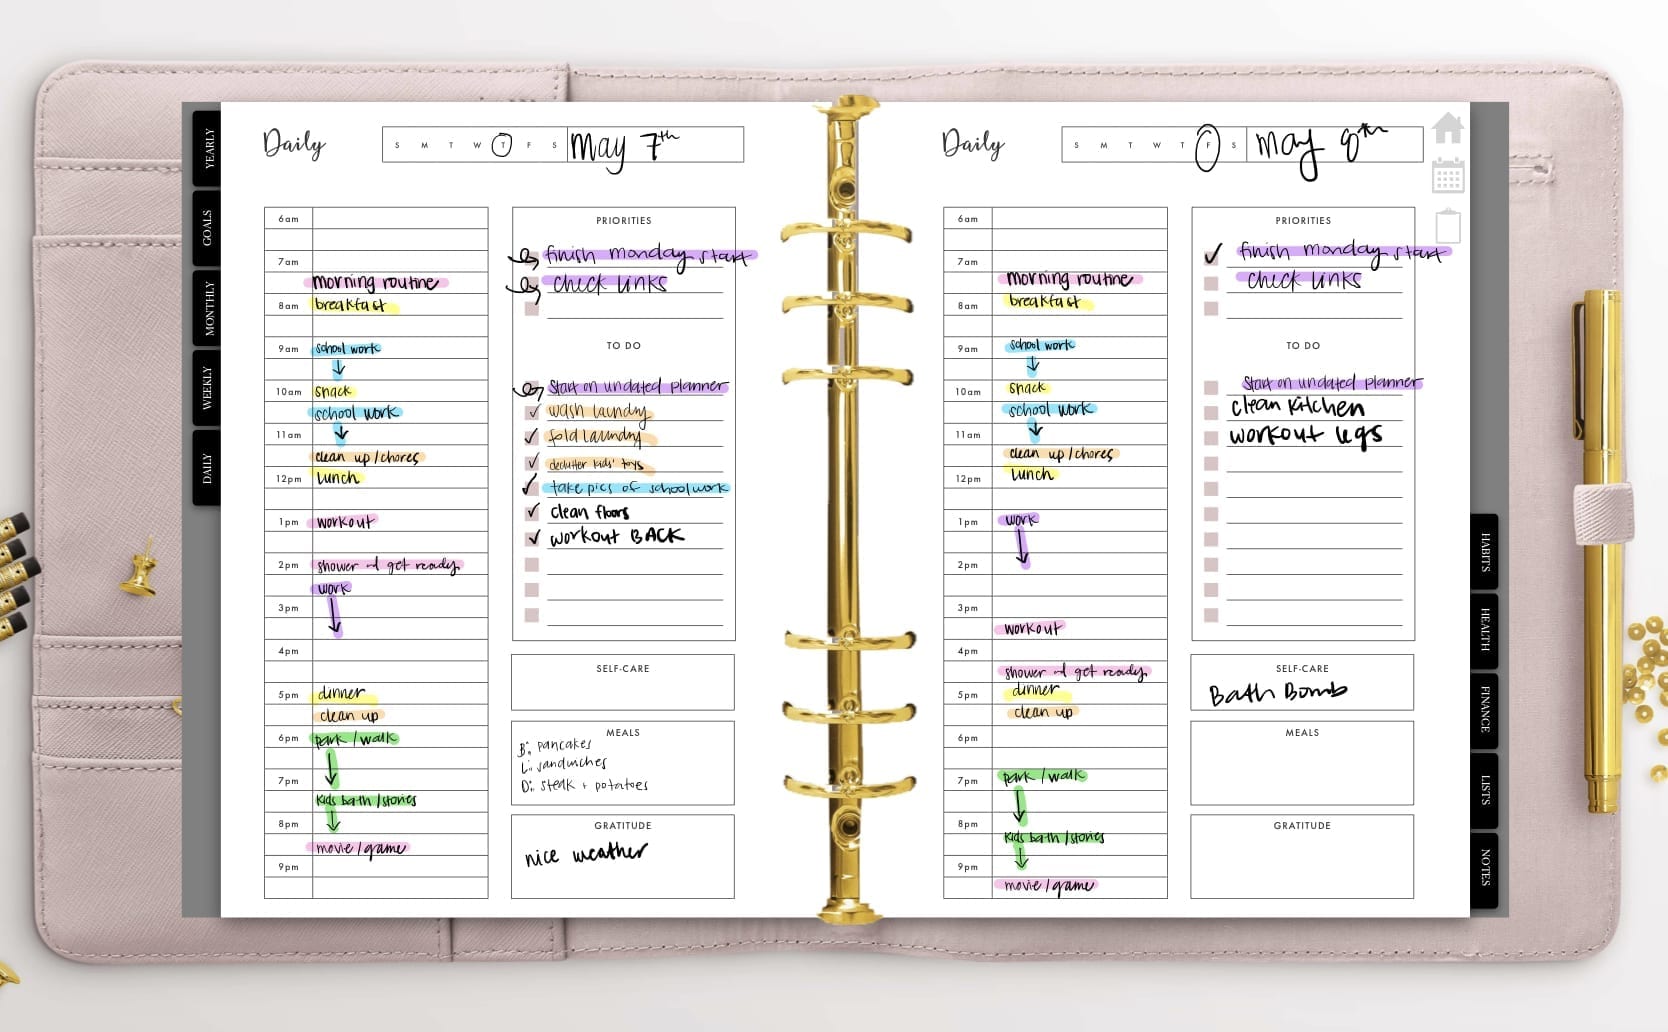 YEARLY
GOALS
MONTHLY
WEEKLY
DAILY
Daily
S M T W T F S May 7th
6am
7am
morning routine
8am breakfast
9am school work
10am snack
school work
11am
clean up/chores
12pm Lunch
1pm workout
2pm shower and get ready
work
3pm
4pm
5pm dinner
clean up
6pm park/walk
7pm
Kids bath/stories
8pm
movie/game
9pm
PRIORITIES
finish monday start
check links
TO DO
Start on undated planner
wash laundry
fold laundry
declutter kids' toys
take pics of schoolwork
clean floors
workout BACK
SELF-CARE
MEALS
B: pancakes
L: sandwiches
D: steak + potatoes
GRATITUDE
nice weather
Daily
S M T W T F S May 8th
6am
7am
morning routine
8am breakfast
9am school work
10am snack
school work
11am
clean up/chores
12pm Lunch
1pm work
2pm
3pm
workout
4pm
shower and get ready
5pm dinner
clean up
6pm
7pm park/walk
8pm
Kids bath/stories
9pm
movie/game
PRIORITIES
finish monday start
check links
TO DO
Start on undated planner
clean kitchen
workout legs
SELF-CARE
Bath Bomb
MEALS
GRATITUDE
HABITS
HEALTH
FINANCE
LISTS
NOTES